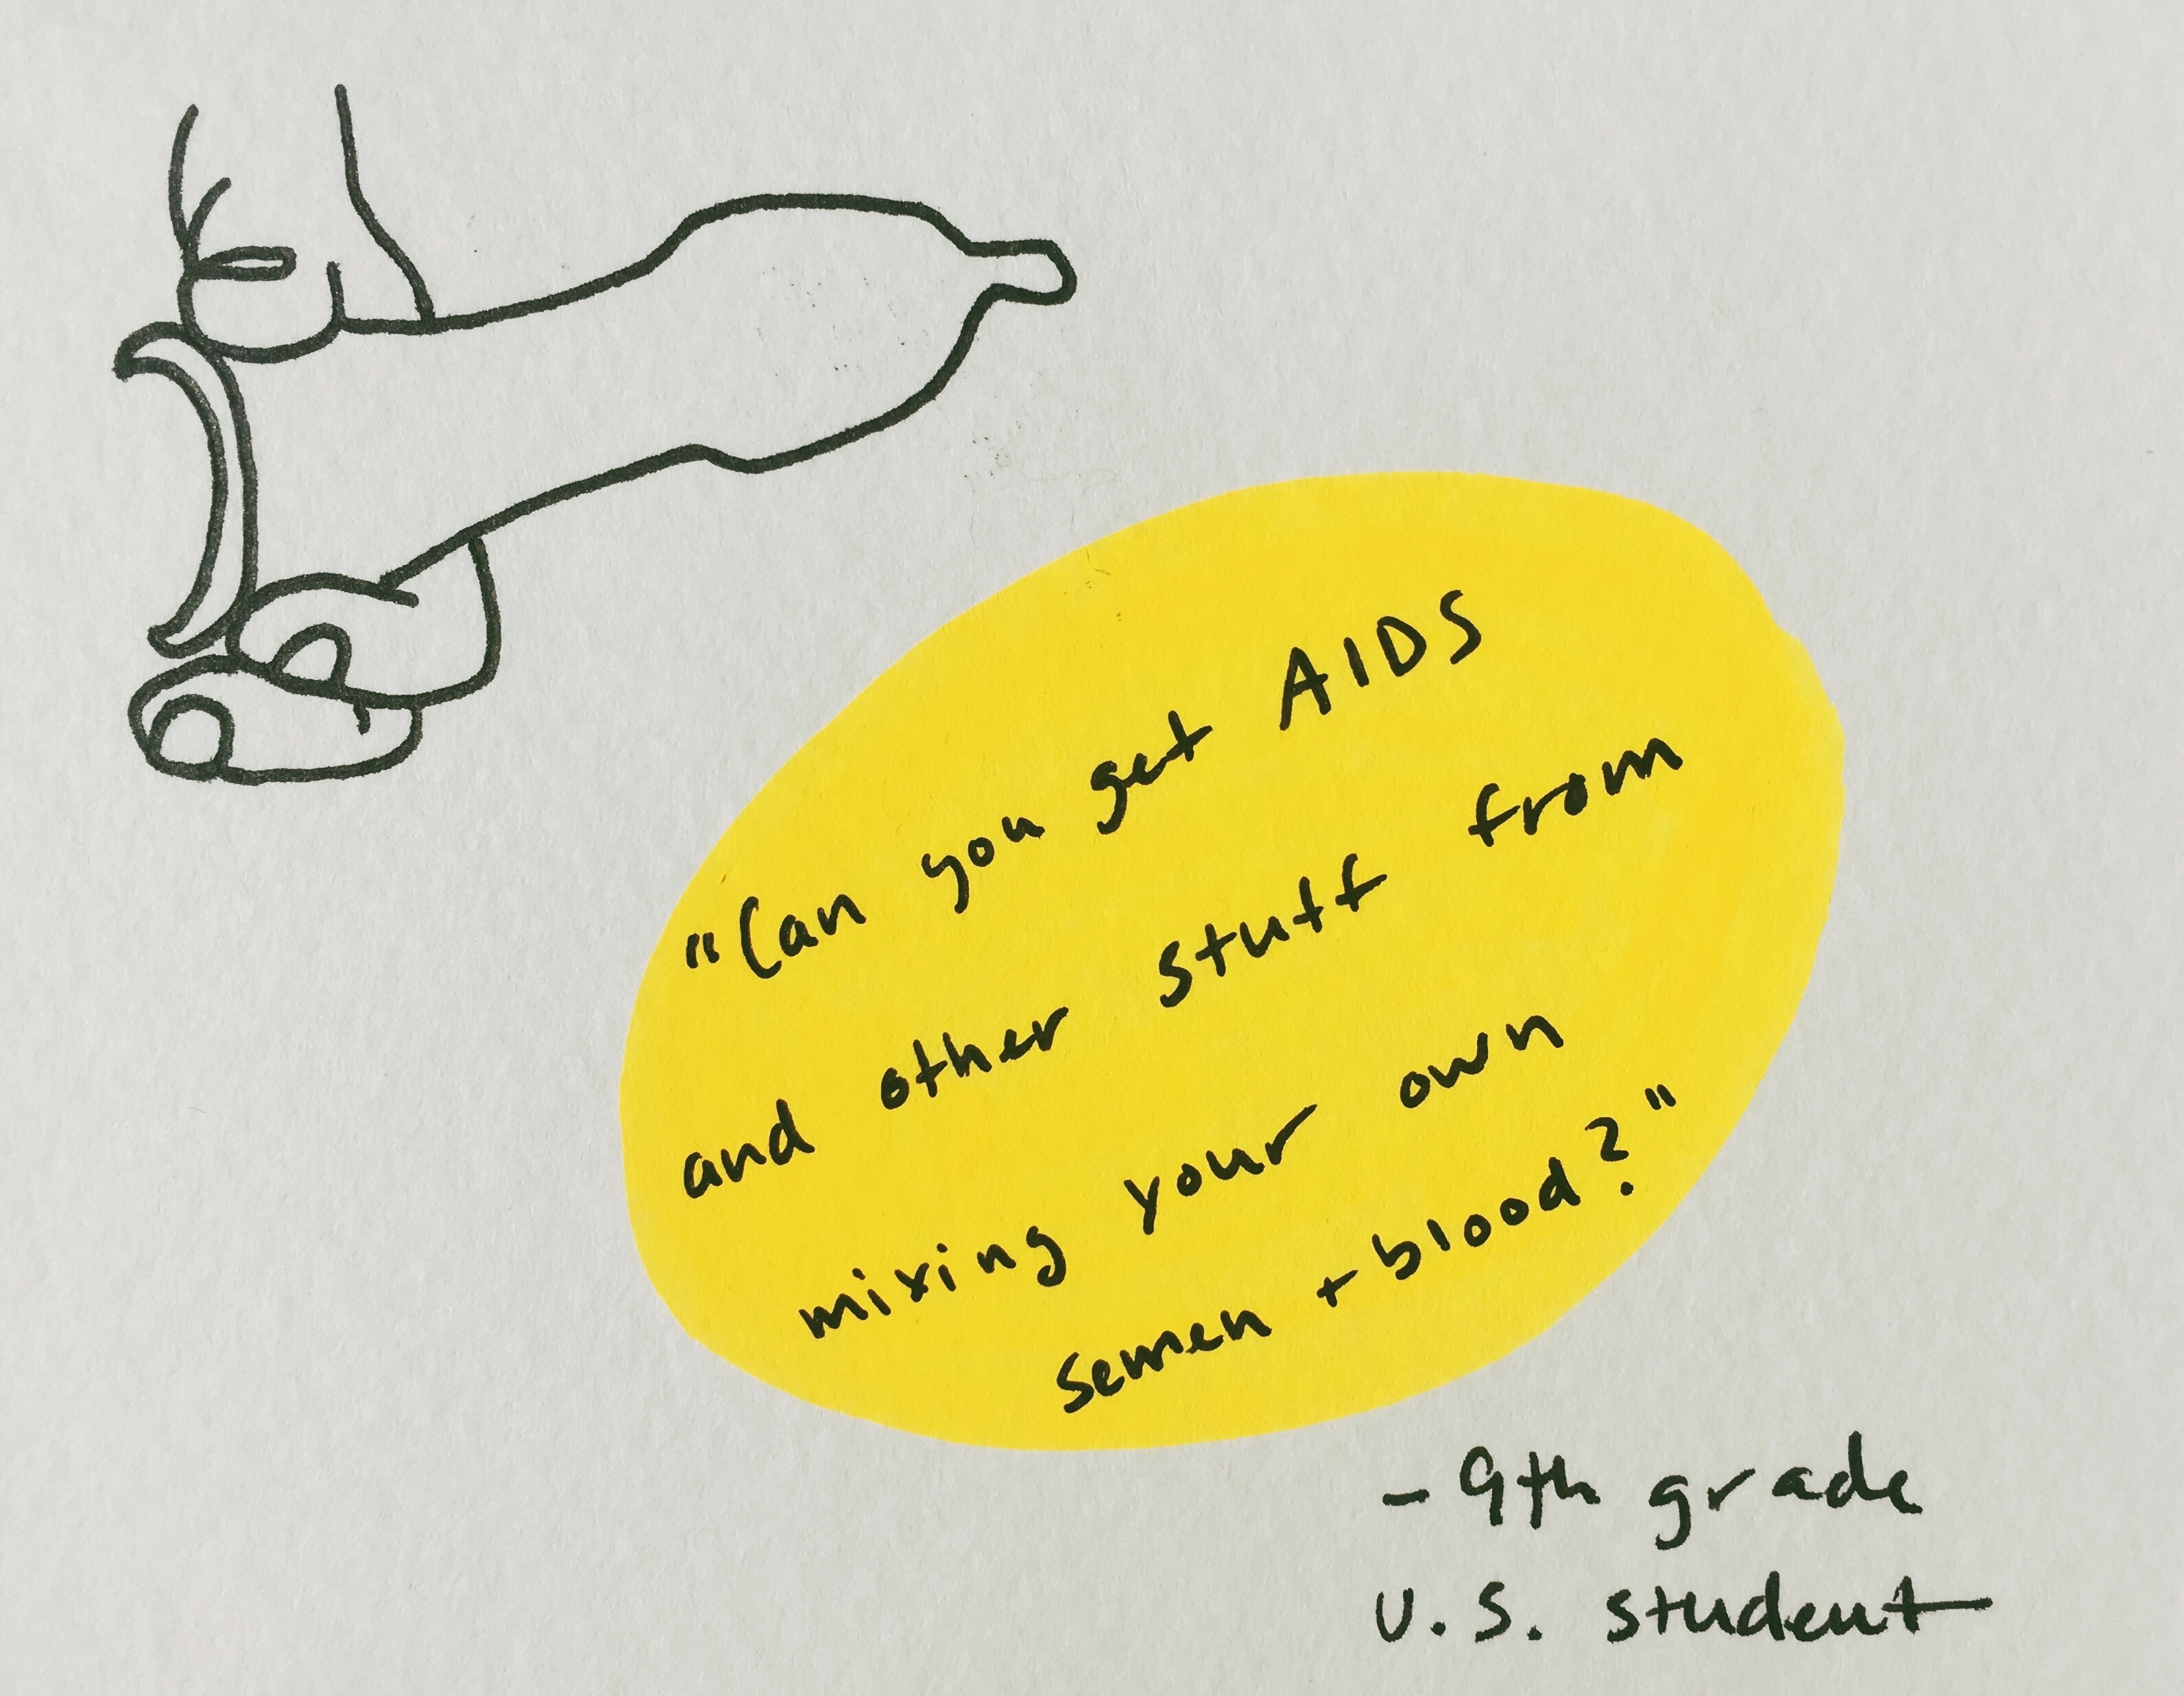 "Can you get AIDS
and other stuff from
mixing your own
semen + blood?"
- 9th grade
U.S. student